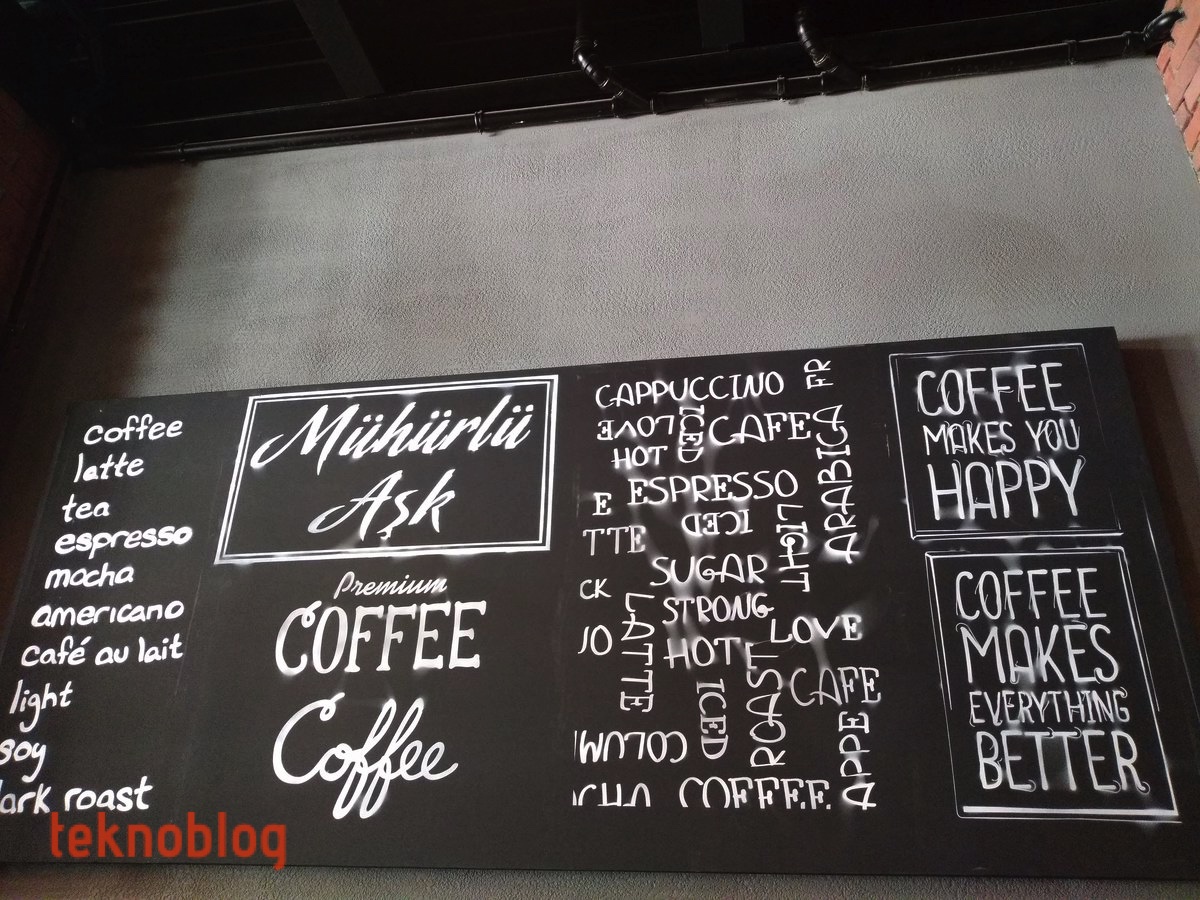 coffee
latte
tea
espresso
mocha
americano
café au lait
light
soy
ark roast
Mühürlü
Aşk
Premium
COFFEE
Coffee
CAPPUCCINO
FR
LOVE
ICED
CAFE
HOT
ARABICA
E
ESPRESSO
TTE
ICED
LIGHT
SUGAR
CK
STRONG
LATTE
LOVE
JO
HOT
ROAST
CAFE
ICED
APPE
COFFEE
COFFEE
MAKES YOU
HAPPY
COFFEE
MAKES
EVERYTHING
BETTER
teknoblog